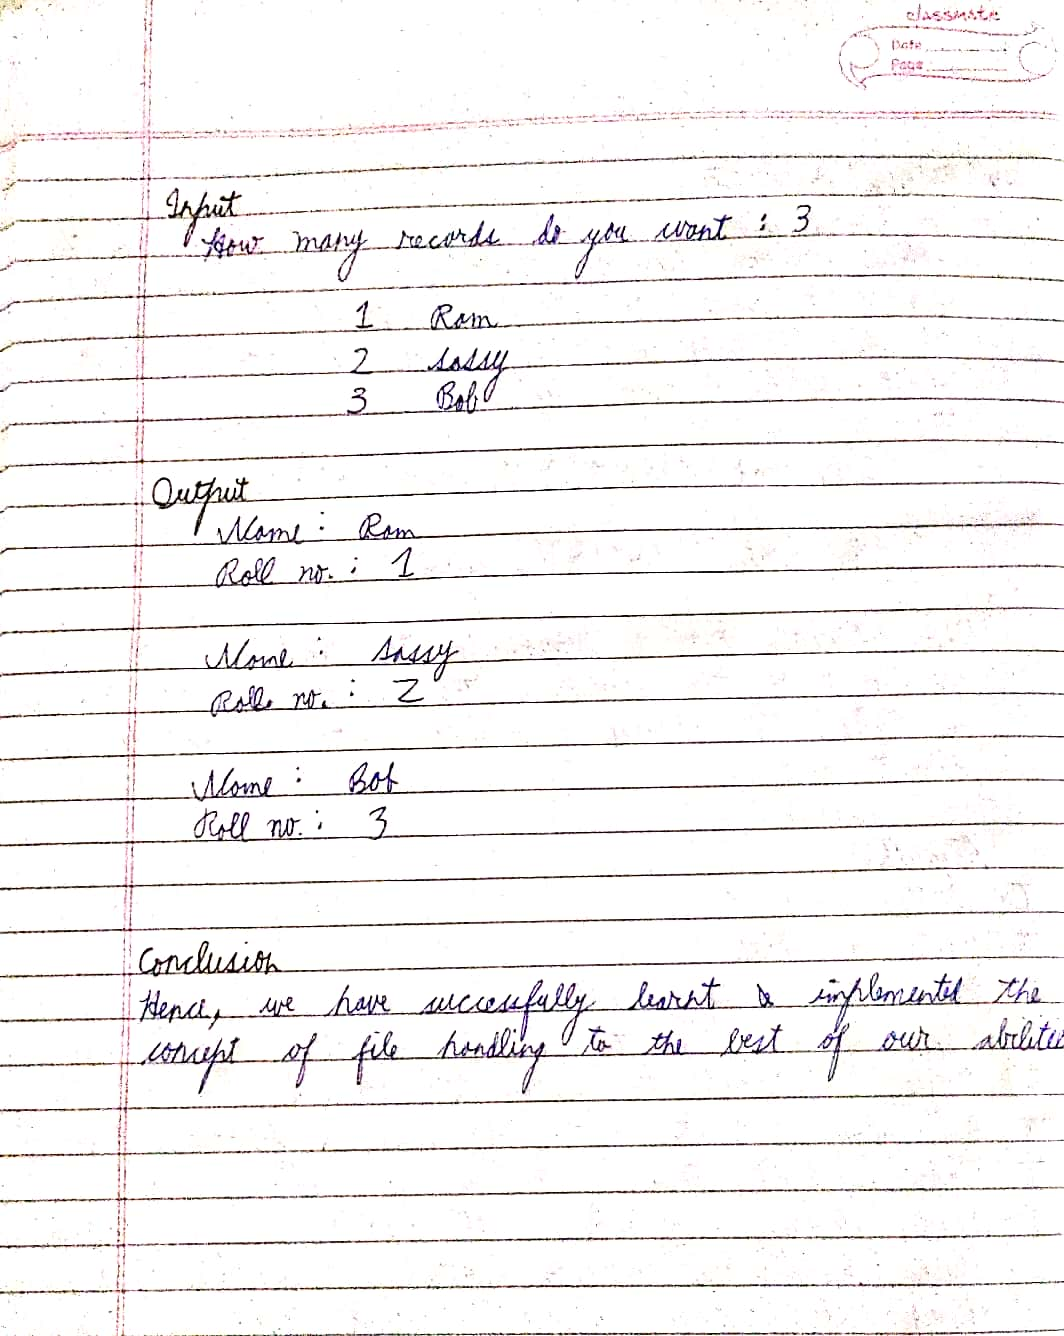 classmate
Date
Page
Input
How many records do you want : 3
1 Ram
2 Sassy
3 Bob
Output
Name : Ram
Roll no. : 1
Name : Sassy
Roll no. : 2
Name : Bob
Roll no. : 3
Conclusion
Hence, we have successfully learnt & implemented the
concept of file handling to the best of our abilites